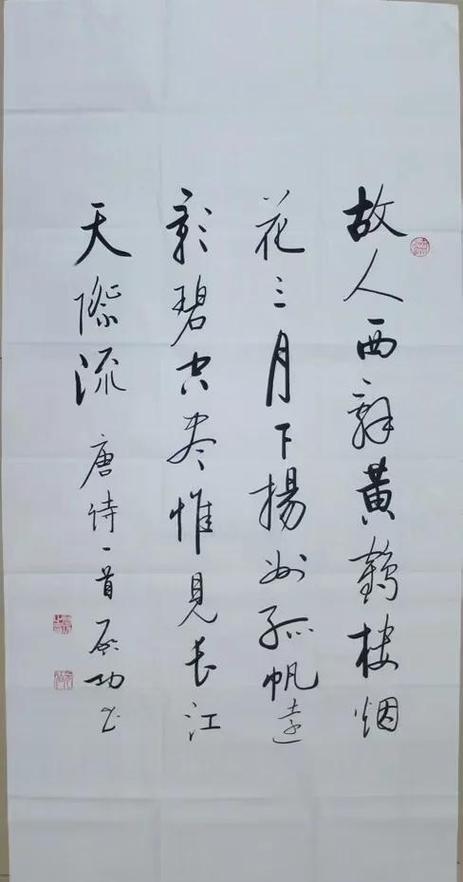 故人西辞黄鹤楼烟
花三月下揚州孤帆遠
影碧空尽惟見长江
天際流 唐诗一首 启功书